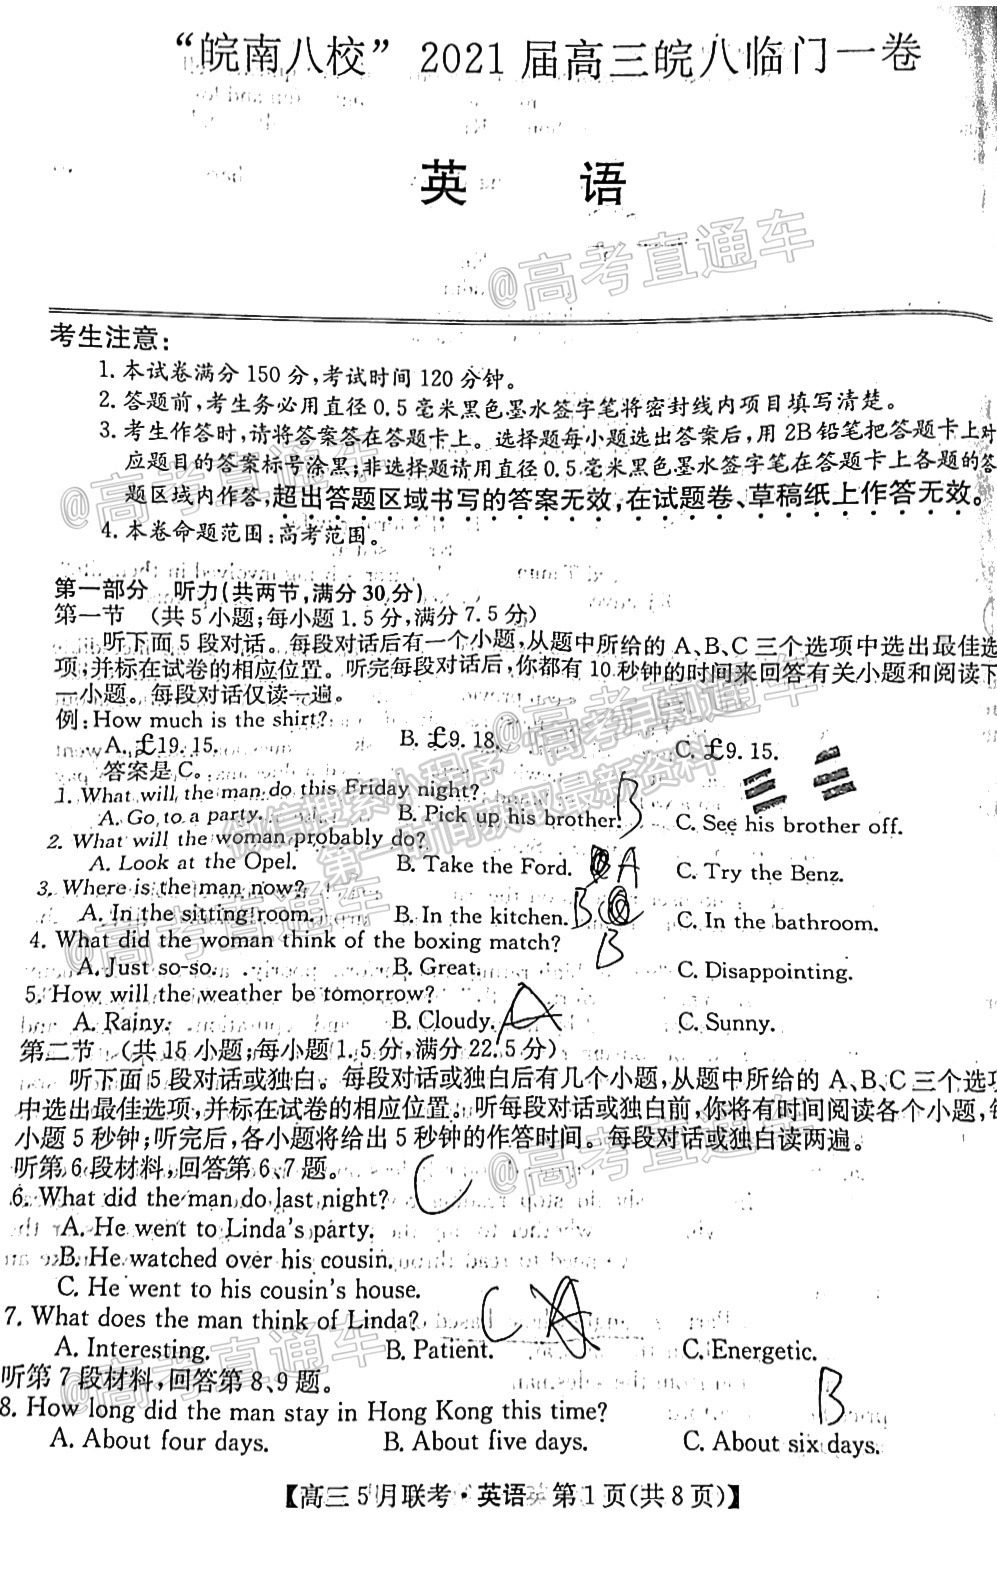 “皖南八校”2021届高三皖八临门一卷
英 语
@高考直通车
考生注意:
1.本试卷满分150分,考试时间120分钟。
2.答题前,考生务必用直径0.5毫米黑色墨水签字笔将密封线内项目填写清楚。
3.考生作答时,请将答案答在答题卡上。选择题每小题选出答案后,用2B铅笔把答题卡上对
应题目的答案标号涂黑;非选择题请用直径0.5毫米黑色墨水签字笔在答题卡上各题的答
题区域内作答,超出答题区域书写的答案无效,在试题卷、草稿纸上作答无效。
@高考直通车
4.本卷命题范围:高考范围。
第一部分 听力(共两节,满分30分)
第一节 (共5小题;每小题1.5分,满分7.5分)
听下面5段对话。每段对话后有一个小题,从题中所给的A、B、C三个选项中选出最佳选
项,并标在试卷的相应位置。听完每段对话后,你都有10秒钟的时间来回答有关小题和阅读下
一小题。每段对话仅读一遍。
例:How much is the shirt?
A. £19.15. B. £9.18. C. £9.15.
@高考直通车
答案是C。
微信搜索小程序
第一时间获取最新资料
1. What will the man do this Friday night? B
A. Go to a party. B. Pick up his brother. C. See his brother off.
2. What will the woman probably do?
A. Look at the Opel. B. Take the Ford. A C. Try the Benz.
3. Where is the man now?
A. In the sitting room. B. In the kitchen. B C. In the bathroom.
@高考直通车
4. What did the woman think of the boxing match? B
A. Just so-so. B. Great. C. Disappointing.
5. How will the weather be tomorrow?
A. Rainy. B. Cloudy. A C. Sunny.
第二节 (共15小题;每小题1.5分,满分22.5分)
听下面5段对话或独白。每段对话或独白后有几个小题,从题中所给的A、B、C三个选项
中选出最佳选项,并标在试卷的相应位置。听每段对话或独白前,你将有时间阅读各个小题,每
小题5秒钟;听完后,各小题将给出5秒钟的作答时间。每段对话或独白读两遍。
@高考直通车
听第6段材料,回答第6、7题。
6. What did the man do last night? C
A. He went to Linda's party.
B. He watched over his cousin.
C. He went to his cousin's house.
7. What does the man think of Linda? C
A. Interesting. B. Patient. C. Energetic.
@高考直通车
听第7段材料,回答第8、9题。
8. How long did the man stay in Hong Kong this time? B
A. About four days. B. About five days. C. About six days.
【高三5月联考·英语 第1页(共8页)】